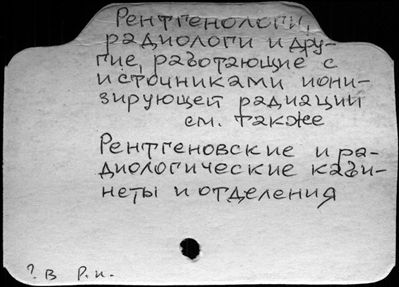 Рентгенологи,
радиологи и дру-
гие, работающие с
источниками иони-
зирующей радиации
см. также
Рентгеновские и ра-
диологические каби-
неты и отделения
? в р.и.